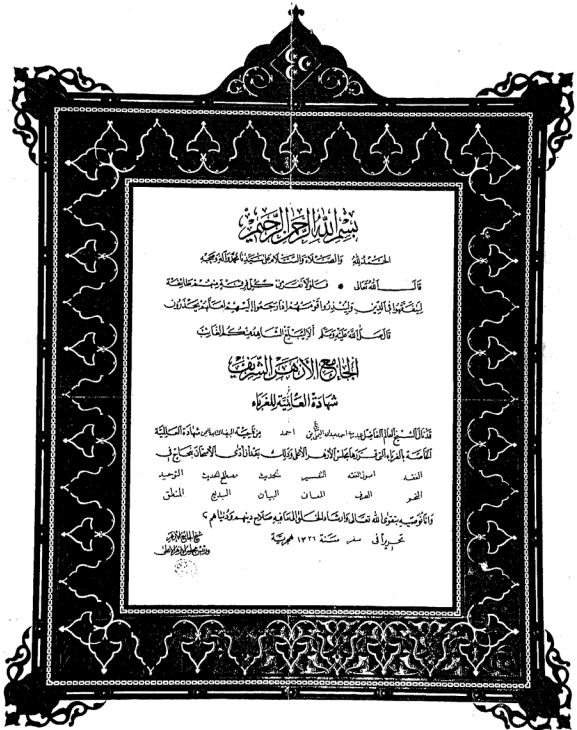 بسم الله الرحمن الرحيم
الحمد لله والصلاة والسلام على سيدنا محمد وآله وصحبه
قال الله تعالى فلولا نفر من كل فرقة منهم طائفة
ليتفقهوا في الدين ولينذروا قومهم إذا رجعوا إليهم لعلهم يحذرون
قال صلى الله عليه وسلم ألا ليبلغ الشاهد منكم الغائب
الجامع الأزهر الشريف
شهادة العالمية للغرباء
قد نال الشيخ العالم الفاضل بن احمد من شهادة العالمية
الخاصة بالغرباء التي قررها مجلس الأزهر الأعلى وذلك بعد أن أدى الامتحان بنجاح في
الفقه اصول الفقه التفسير الحديث مصطلح الحديث التوحيد
النحو الصرف المعاني البيان البديع المنطق
وانا نوصيه بتقوى الله تعالى وارشاد الخلق لما فيه صلاح دينهم ودنياهم
تحريرا في صفر سنة ١٣٢٦ هجرية
شيخ الجامع الأزهر